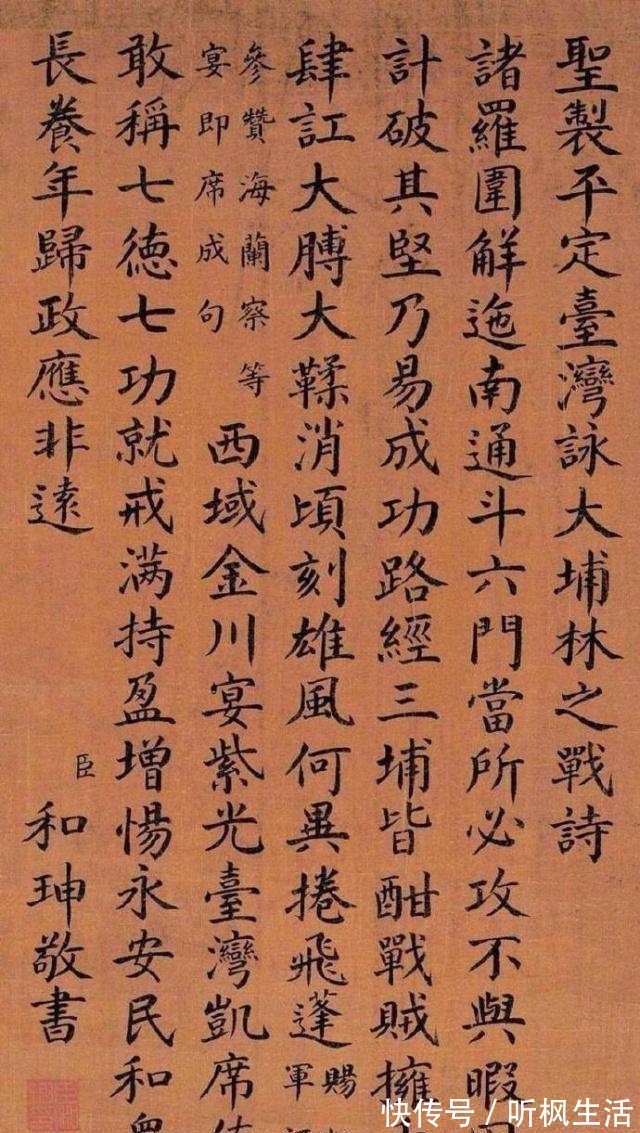 聖製平定臺灣詠大埔林之戰詩
諸羅圍解迤南通斗六門當所必攻不與暇
計破其堅乃易成功路經三埔皆酣戰賊擁
肆訌大膊大鞣消頃刻雄風何異捲飛蓬
賜
軍
參贊海蘭察等
宴即席成句
西域金川宴紫光臺灣凱席
敢稱七徳七功就戒满持盈增惕永安民和
長養年歸政應非遠
臣和珅敬書
快传号/听枫生活